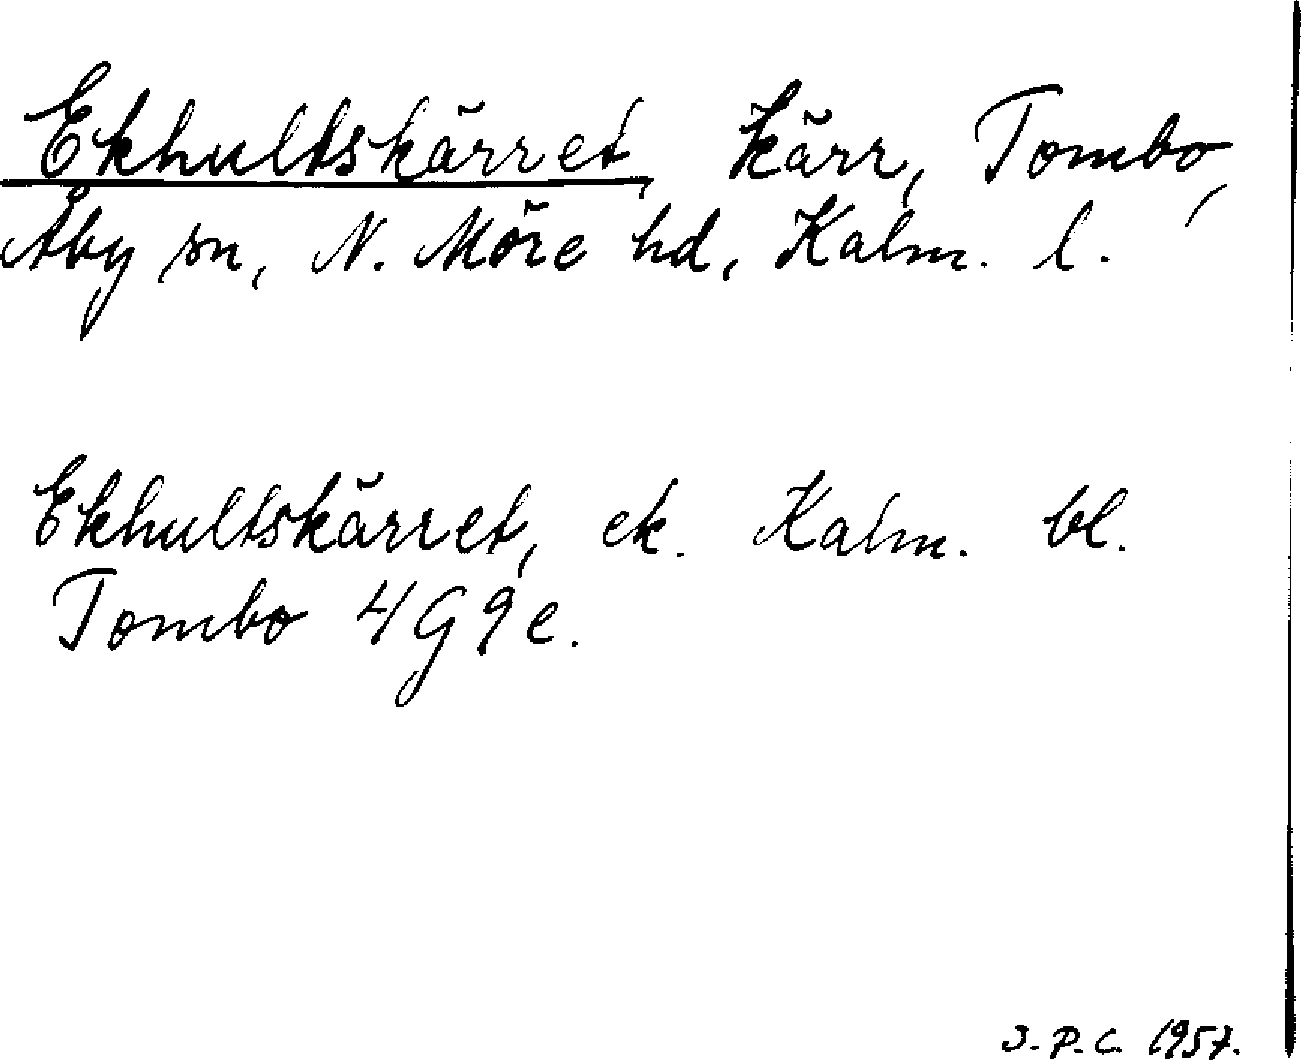 Ekhultskärret, kärr, Tombo,
Åby sn, N. Möre hd, Kalm. l.
Ekhultskärret, ek. Kalm. bl.
Tombo 4G9e.
J.P.C. 1957.